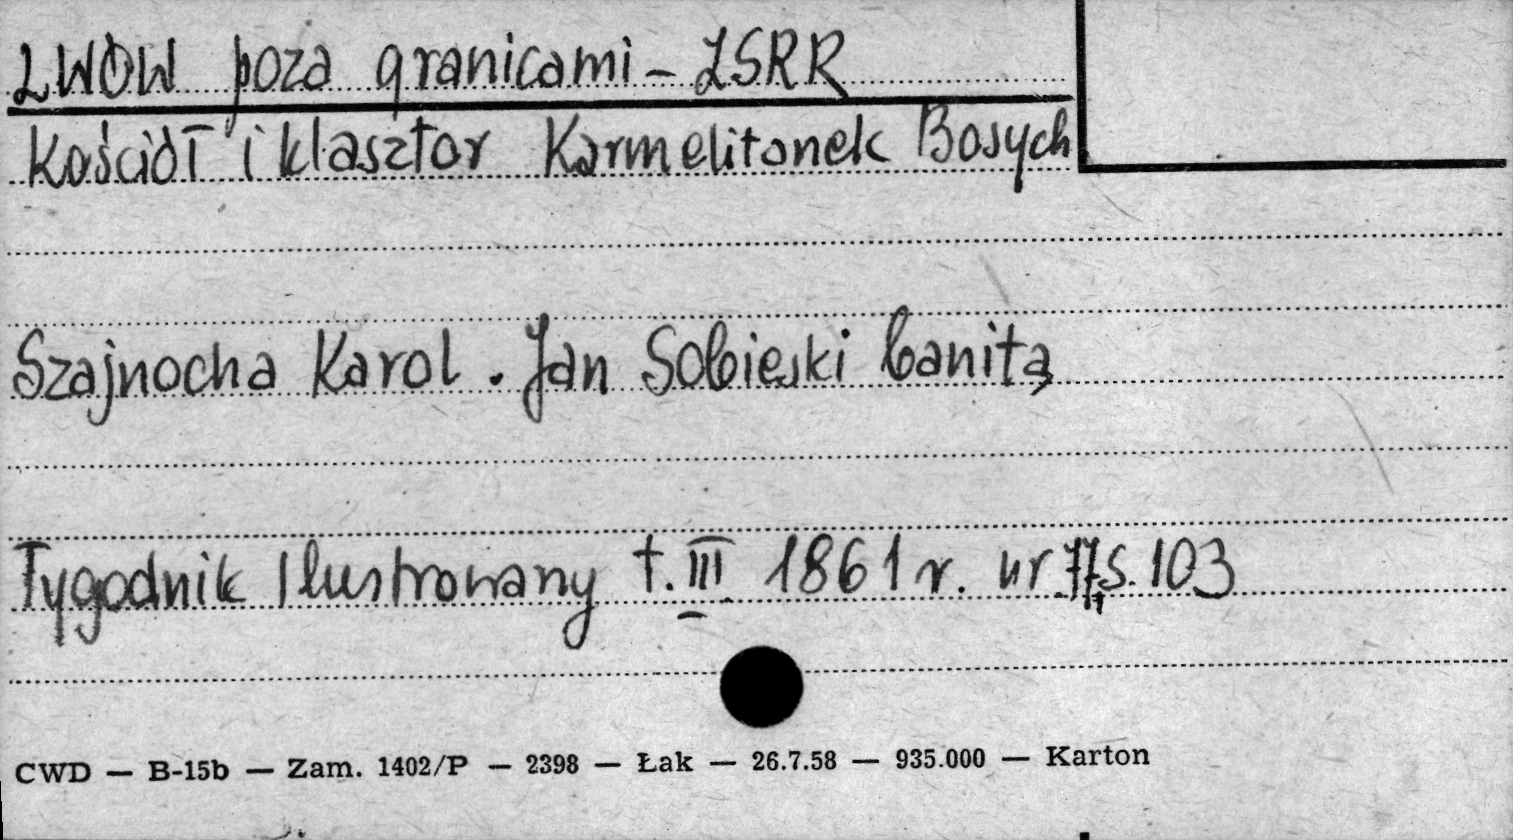 LWÓW poza granicami - ZSRR
Kościół i klasztor Karmelitanek Bosych
Szajnocha Karol . Jan Sobieski banitą
Tygodnik Ilustrowany t. III 1861 r. nr 77, s. 103
CWD — B-15b — Zam. 1402/P — 2398 — Łak — 26.7.58 — 935.000 — Karton